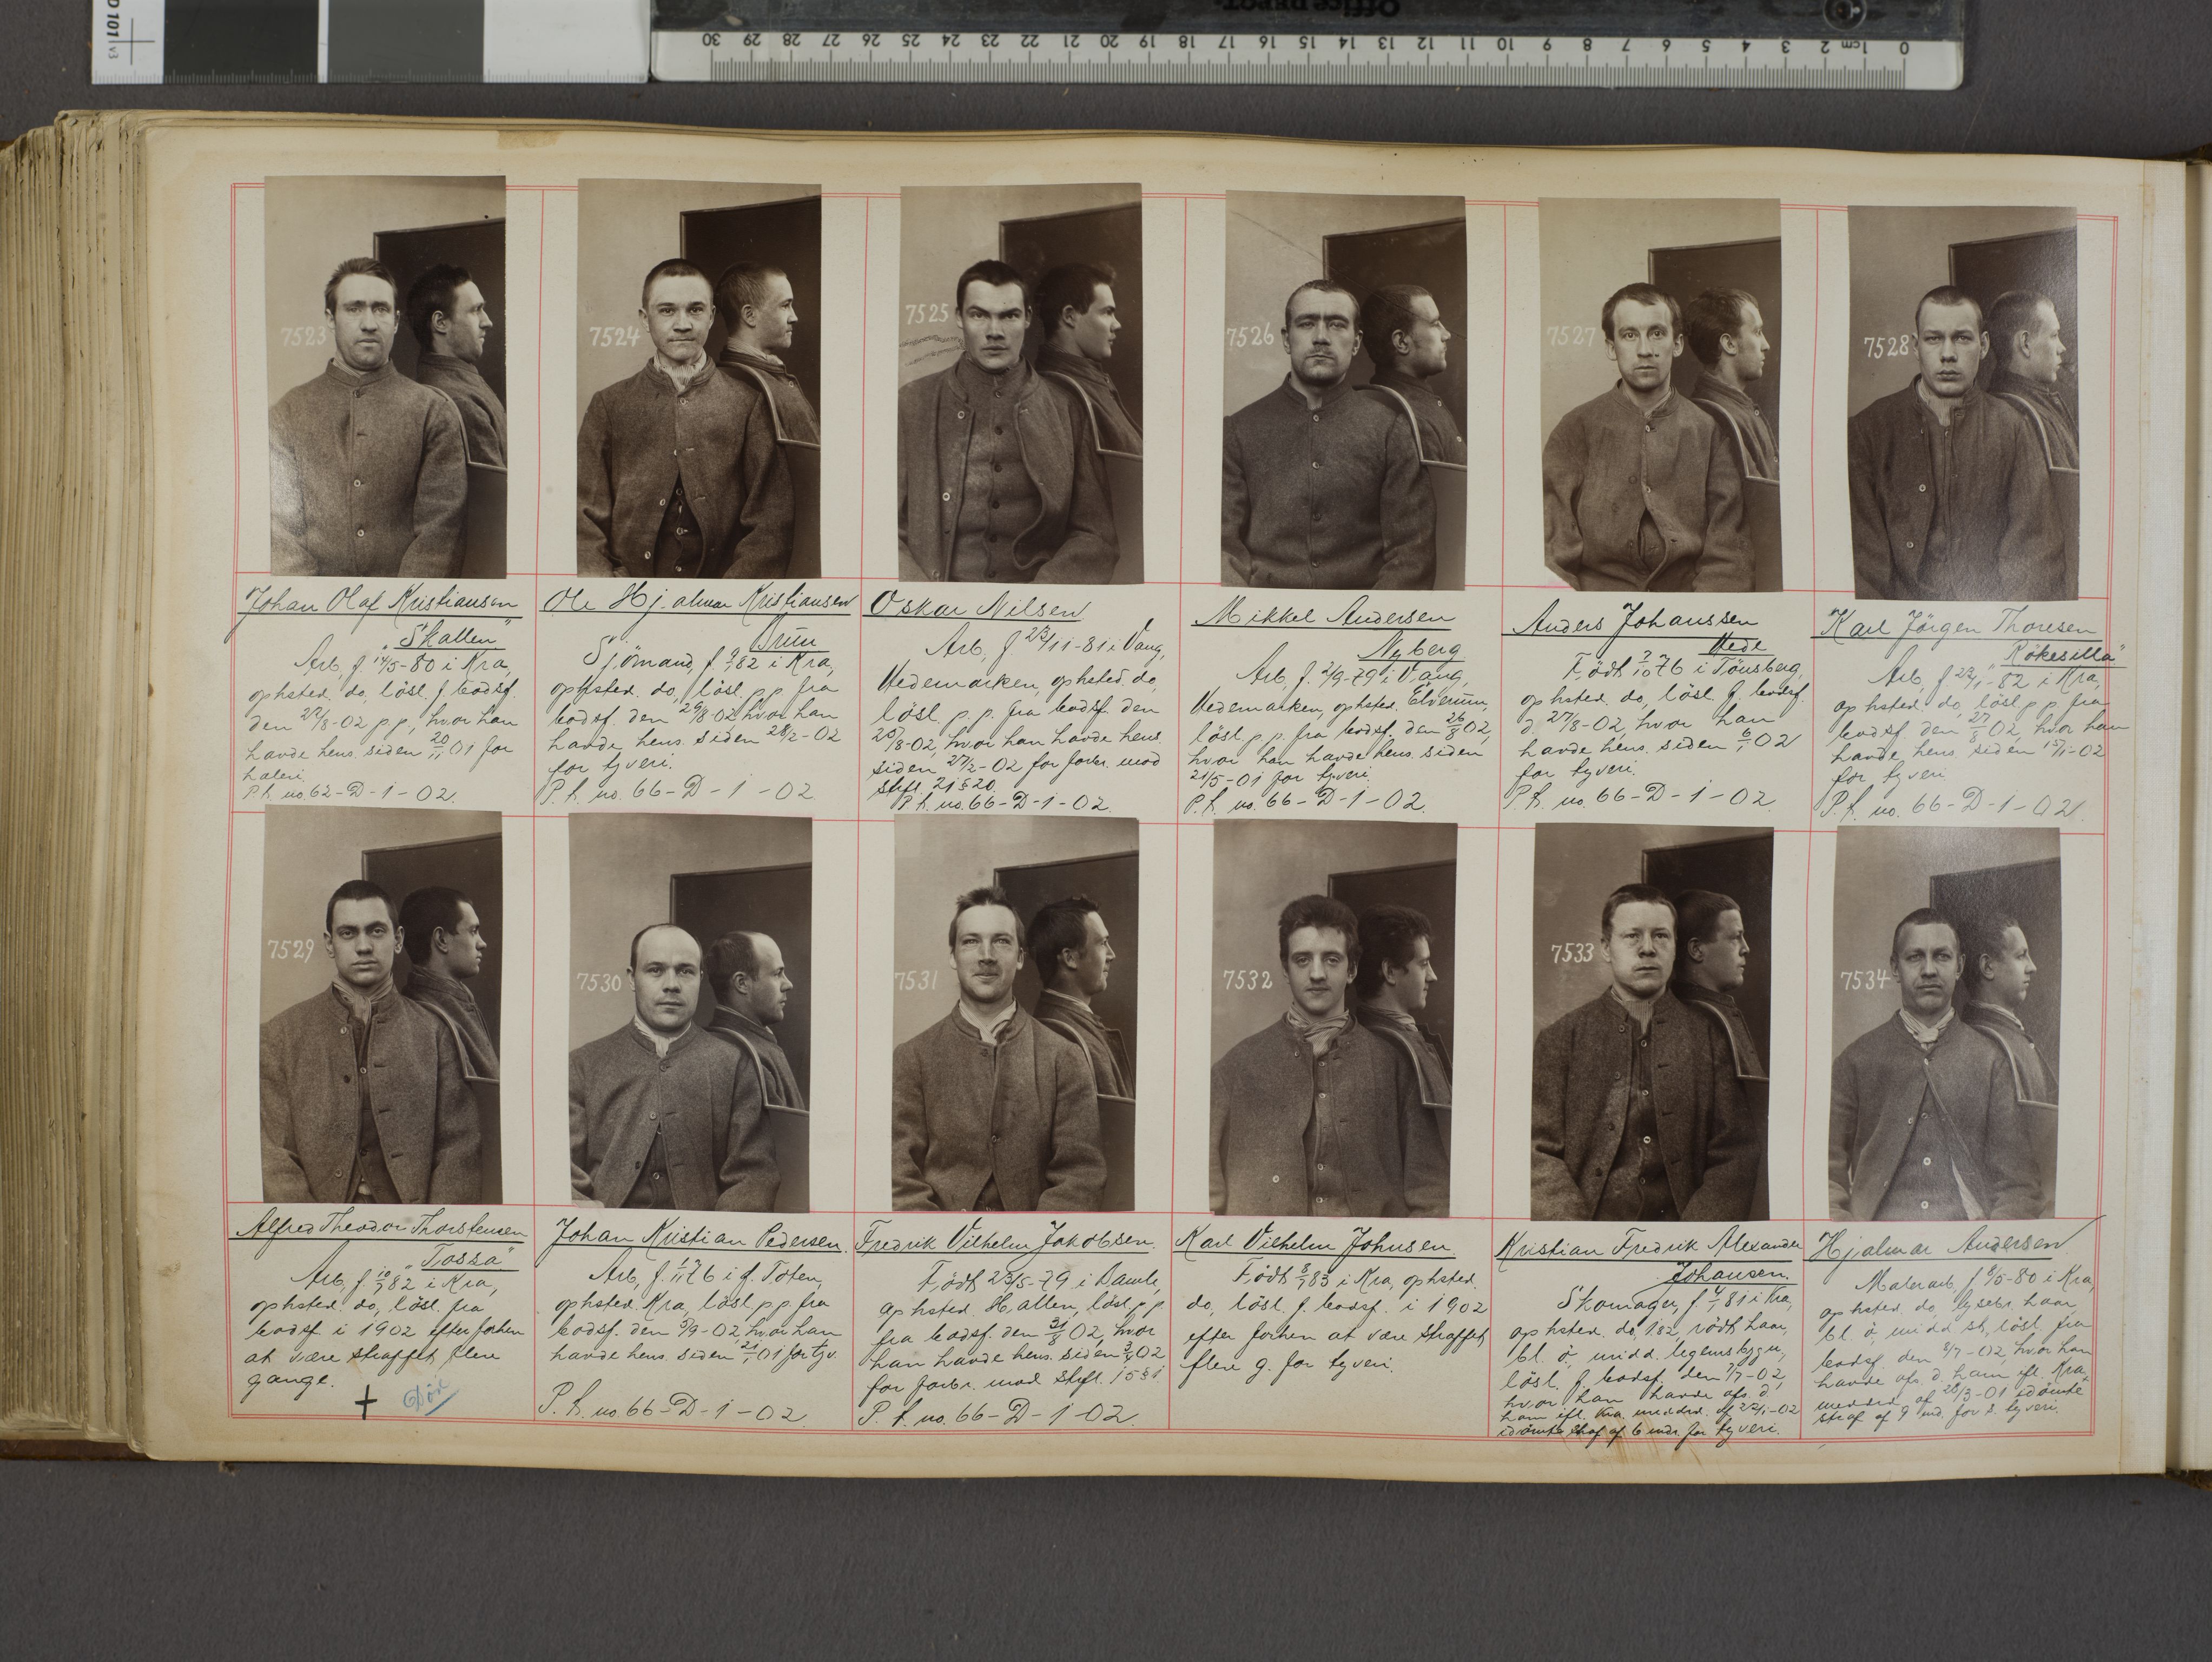 Office DEPOT
0 1cm 2 3 4 5 6 7 8 9 10 11 12 13 14 15 16 17 18 19 20 21 22 23 24 25 26 27 28 29 30
7523
Johan Olaf Kristiansen
„Skallen"
Arb, f. 14/5-80 i Kra,
ophsted. do, lösl. f. bodsf.
den 27/8-02 p.p., hvor han
havde hens. siden 20/11 01 for
hæleri.
P.h. no. 62-D-1-02.
7524
Ole Hjalmar Kristiansen
Brun
Sjömand, f. 82 i Kra,
ophsted. do, lösl. p.p. fra
bodsf. den 29/8-02, hvor han
havde hens. siden 28/2-02
for tyveri.
P.h. no. 66-D-1-02
7525
Oskar Nilsen
Arb, f. 23/11-81 i Vang,
Hedemarken, ophsted. do,
lösl. p.p. fra bodsf. den
25/8-02, hvor han havde hens.
siden 27/2-02 for forbr. mod
stfl. 21 § 20.
P.h. no. 66-D-1-02.
7526
Mikkel Andersen
Nyberg
Arb, f. 2/9-79 i Vang,
Hedemarken, ophsted. Elverum,
lösl. p.p. fra bodsf. den 26/8 02,
hvor han havde hens. siden
21/5-01 for tyveri.
P.h. no. 66-D-1-02.
7527
Anders Johanssen
Hede
Födt 7/10 76 i Tönsberg,
ophsted. do, lösl. f. bodsf.
d. 27/8-02, hvor han
havde hens. siden 6/1 02
for tyveri.
P.h. no. 66-D-1-02.
7528
Karl Jörgen Thoresen
„Rökesilla"
Arb, f. 22/1-82 i Kra,
ophsted. do, lösl. p.p. fra
bodsf. den 27/8 02, hvor han
havde hens. siden 15/1-02
for tyveri
P.h. no. 66-D-1-02.
7529
Alfred Theodor Thorstensen
„Tossa"
Arb, f. 82 i Kra,
ophsted. do, lösl. fra
bodsf. i 1902 efter forhen
at være straffet flere
gange.
+ Död
7530
Johan Kristian Pedersen.
Arb, f. 1/11 76 i Toten,
ophsted. Kra, lösl. p.p. fra
bodsf. den 3/9-02, hvor han
havde hens. siden 01 for tyv.
P.h. no. 66-D-1-02
7531
Fredrik Vilhelm Jakobsen.
Födt 23/5-79 i Bamle,
ophsted. Hallen, lösl. p.p.
fra bodsf. den 31/8 02, hvor
han havde hens. siden 02
for forbr. mod stfl. 15 § 1
P.h. no. 66-D-1-02.
7532
Karl Vilhelm Johnsen
Födt 83 i Kra, ophsted.
do, lösl. f. bodsf. i 1902
efter forhen at være straffet
flere g. for tyveri.
7533
Kristian Fredrik Alexander
Johansen.
Skomager, f. 81 i Kra,
ophsted. do, 182, rödt haar,
bl. ö, midd. legemsbygn,
lösl. f. bodsf. den 7/7-02,
hvor han havde afs. d.
ham ifl. Kra. meddrd. af 22/1-02
idömte straf af 6 mdr. for tyveri.
7534
Hjalmar Andersen
Malerarb, f. 8/5-80 i Kra,
ophsted. do, lysebr. haar,
bl. ö, midd. st, lösl. fra
bodsf. den 8/7-02, hvor han
havde afs. d. ham ifl. Kra.
meddrd. af 28/3-01 idömte
straf af 9 md. for tyveri.